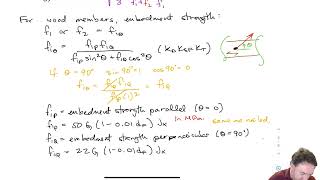 For wood members, embedment strength:
f₁ or f₂ = fᵢθ
fᵢθ = fᵢₚ fᵢQ / fᵢₚ sin²θ + fᵢQ cos²θ (K_D K_SF K_T)
θ
if θ = 90° sin 90° = 1 cos 90° = 0
fᵢθ = fᵢₚ fᵢQ / fᵢₚ (1)²
fᵢₚ = embedment strength parallel (θ = 0)
fᵢₚ = 50 G (1 - 0.01 d_F) Jₓ in MPa
fᵢQ = embedment strength perpendicular (θ = 90°)
fᵢQ = 22 G (1 - 0.01 d_F) Jₓ